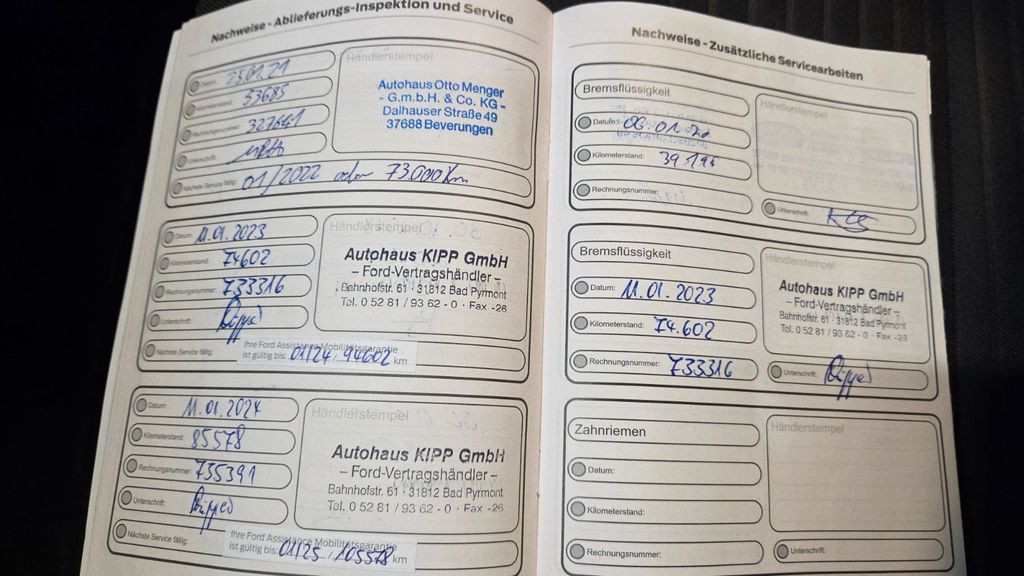 Nachweise - Ablieferungs-Inspektion und Service
Datum: 23.01.21
Kilometerstand: 53685
Rechnungsnummer: 327641
Unterschrift:
Nächste Service fällig: 01/2022 oder 73.000 Km
Händlerstempel
Autohaus Otto Menger
- G.m.b.H. & Co. KG -
Dalhauser Straße 49
37688 Beverungen
Datum: 11.01.2023
Kilometerstand: 74602
Rechnungsnummer: 733316
Unterschrift:
Nächste Service fällig:
Ihre Ford Assistance Mobilitätsgarantie
ist gültig bis: 01/24, 94602 km
Händlerstempel
Autohaus KIPP GmbH
– Ford-Vertragshändler –
Bahnhofstr. 61 · 31812 Bad Pyrmont
Tel. 0 52 81 / 93 62 - 0 · Fax -26
Datum: 11.01.2024
Kilometerstand: 85578
Rechnungsnummer: 735391
Unterschrift:
Nächste Service fällig:
Ihre Ford Assistance Mobilitätsgarantie
ist gültig bis: 01/25, 105578 km
Händlerstempel
Autohaus KIPP GmbH
– Ford-Vertragshändler –
Bahnhofstr. 61 · 31812 Bad Pyrmont
Tel. 0 52 81 / 93 62 - 0 · Fax -26
Nachweise - Zusätzliche Servicearbeiten
Bremsflüssigkeit
Datum: 06.01.20
Kilometerstand: 39196
Rechnungsnummer:
Händlerstempel
Unterschrift:
Bremsflüssigkeit
Datum: 11.01.2023
Kilometerstand: 74.602
Rechnungsnummer: 733316
Händlerstempel
Autohaus KIPP GmbH
– Ford-Vertragshändler –
Bahnhofstr. 61 · 31812 Bad Pyrmont
Tel. 0 52 81 / 93 62 - 0 · Fax -26
Unterschrift:
Zahnriemen
Datum:
Kilometerstand:
Rechnungsnummer:
Händlerstempel
Unterschrift: